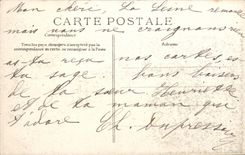 Mon chéri, La Seine remonte
CARTE POSTALE
mais nous ne craignons rien
Correspondance
Adresse
Tous les pays étrangers n'acceptent pas la
correspondance au recto, se renseigner à la Poste
as-tu reçu nos cartes, es-
tu sage. bons baisers
de ta sœur Henriette
et de ta maman qui
t'adore Ch. Dupressoir